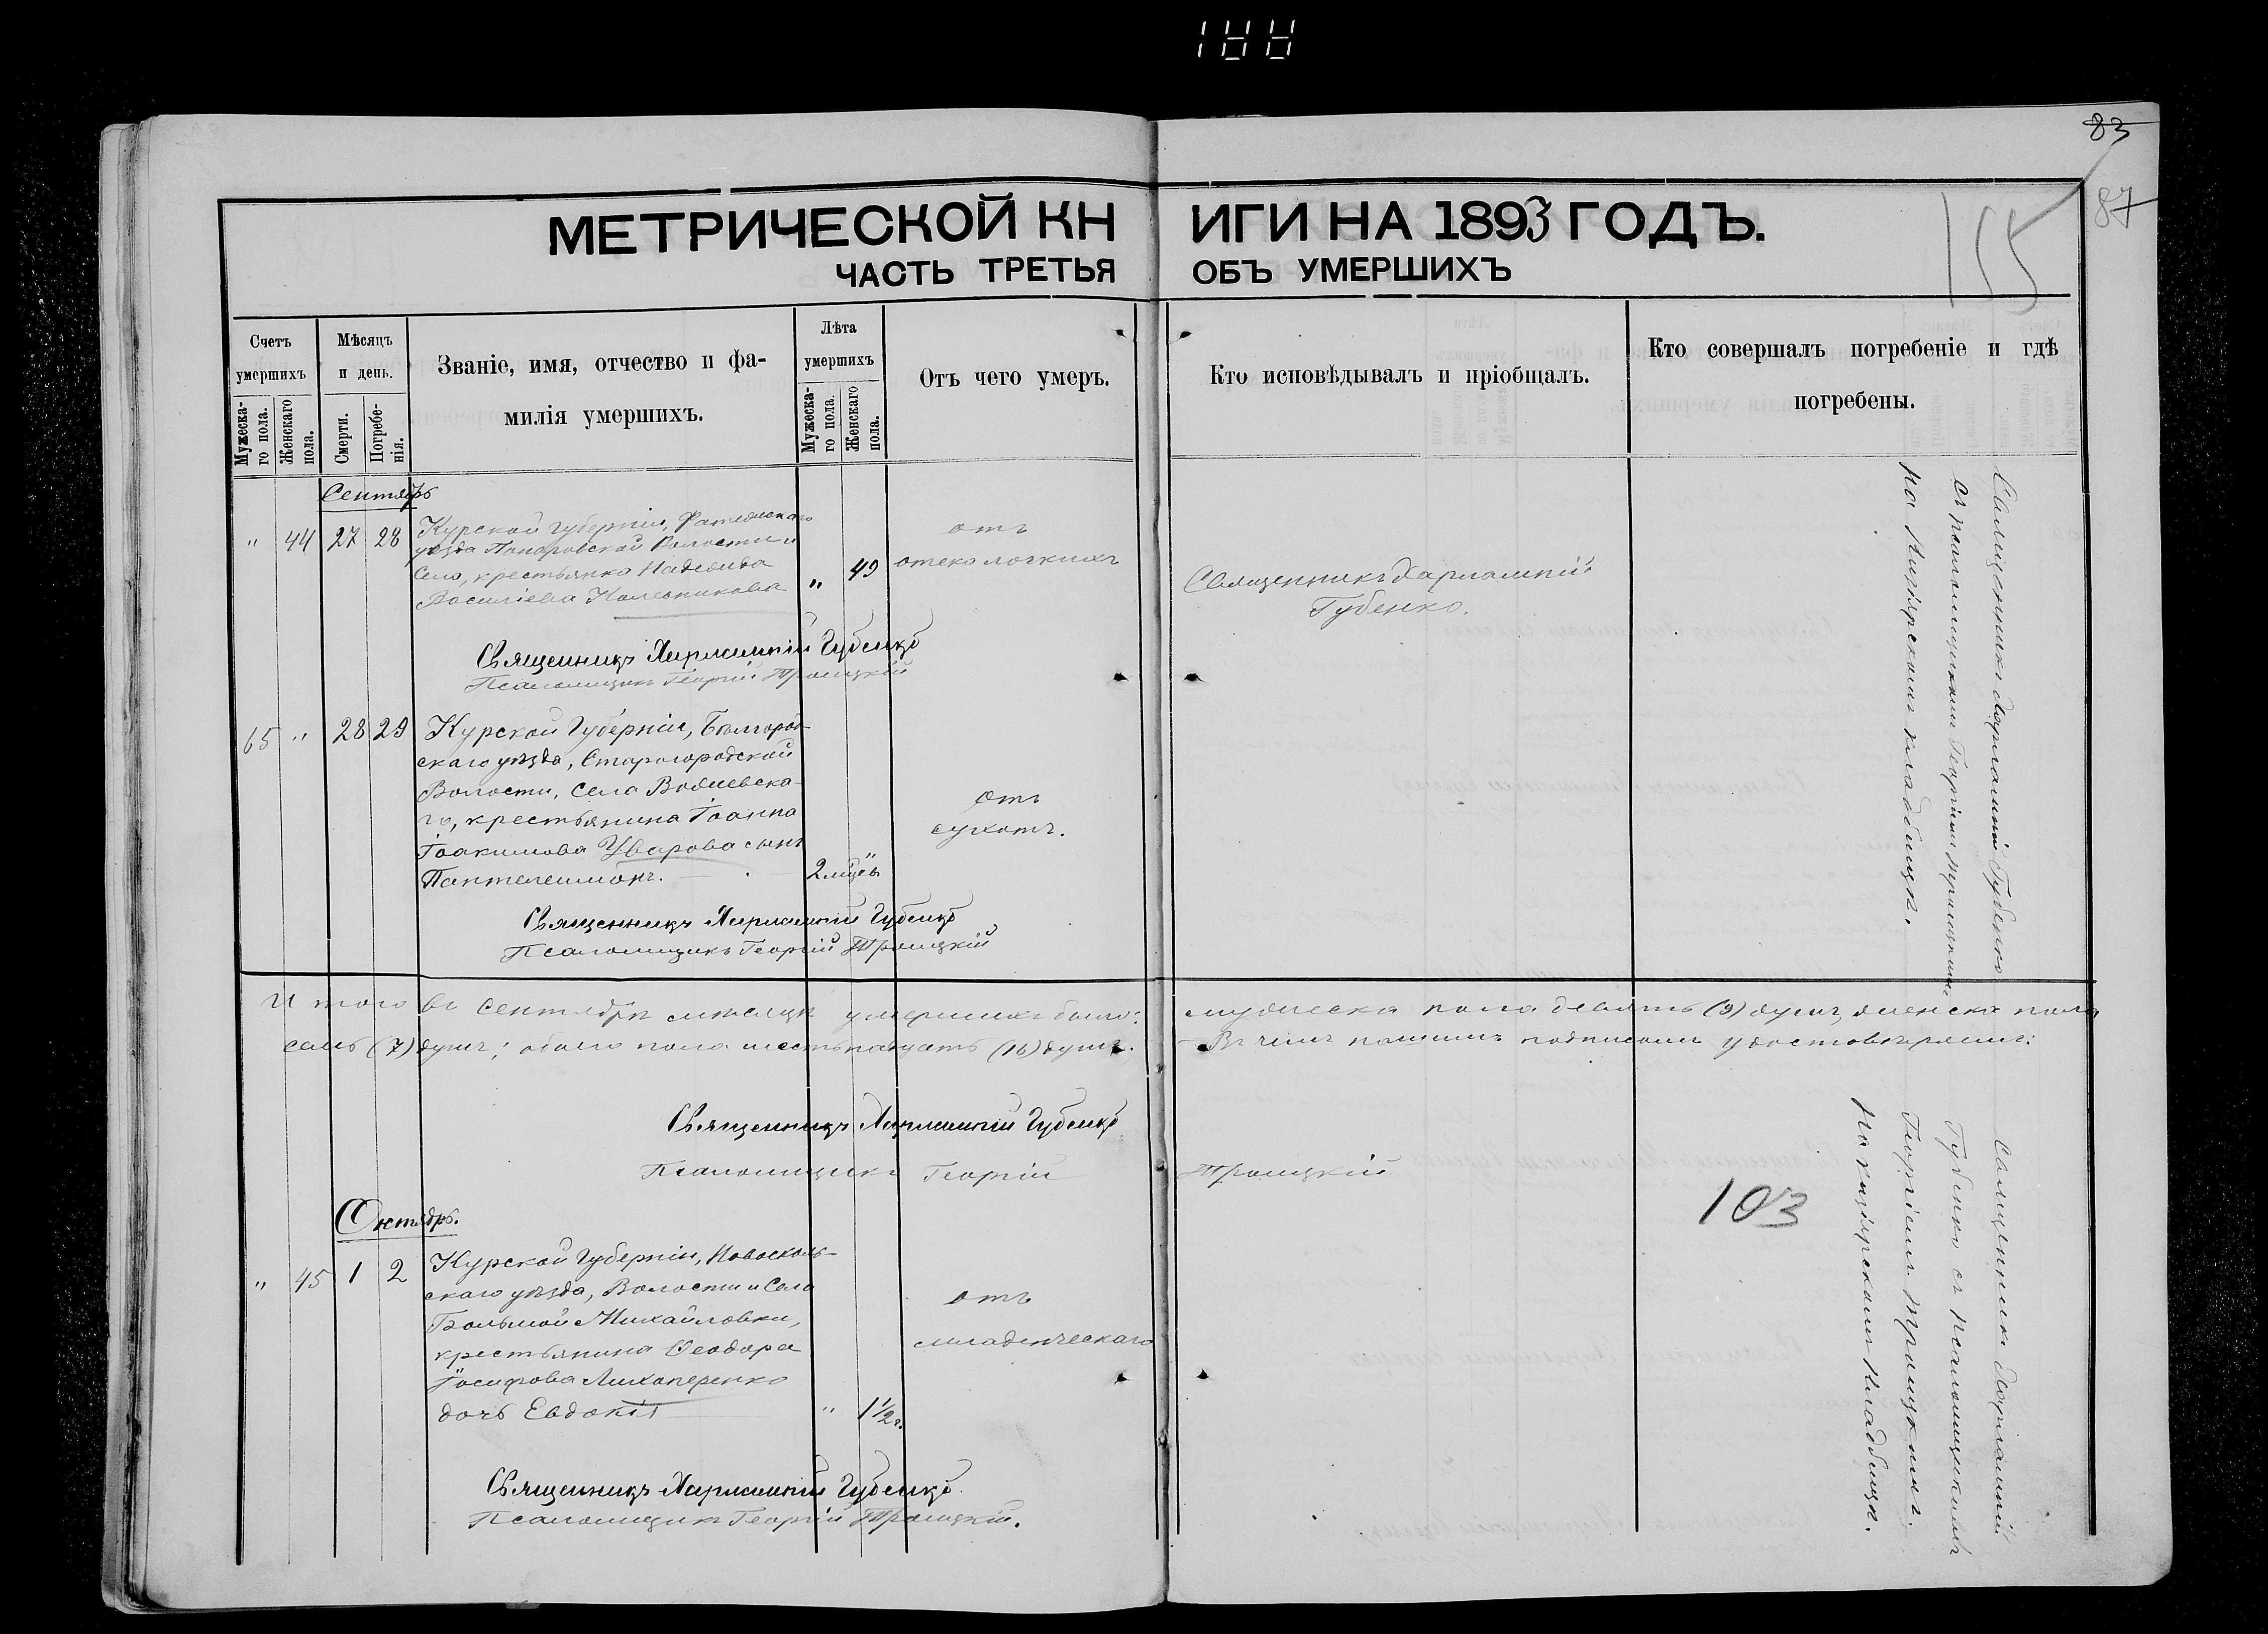 188
83
87
155
МЕТРИЧЕСКОЙ КНИГИ НА 1893 ГОДЪ.
ЧАСТЬ ТРЕТЬЯ ОБЪ УМЕРШИХЪ
Счетъ умершихъ
Мужеска-го пола.
Женскаго пола.
Мѣсяцъ и день.
Смерти.
Погребе-нія.
Званіе, имя, отчество и фа-
милія умершихъ.
Лѣта умершихъ
Мужеска-го пола.
Женскаго пола.
Отъ чего умеръ.
Кто исповѣдывалъ и пріобщалъ.
Кто совершалъ погребеніе и гдѣ
погребены.
Сентябрь
" 44 27 28
Курской губерніи, Фатежскаго
уѣзда Волости и
Село, крестьянка Надежда
Василіева Колесникова
" 49
отъ
отека легкихъ
Священникъ Харлампій
Губенко.
Священникъ Харлампій Губенко
съ псаломщикомъ Георгіемъ Троицкимъ
на кладбищѣ.
Священникъ Харлампій Губенко
Псаломщикъ Георгій Троицкій
65 " 28 29
Курской Губерніи, Бѣлгород-
скаго уѣзда, Старогородской
Волости, Села
го, крестьянина Іоанна
Іоакимова Уварова сынъ
Пантелеимонъ.
2 мцѣв "
отъ
сухотъ.
Священникъ Харлампій Губенко
Псаломщикъ Георгій Троицкій
И того въ Сентябрѣ мѣсяцѣ умершихъ было: мужеска пола девять (9) душъ, женска пола
семь (7) душъ; обоего пола шестьнадцать (16) душъ. — Въ чемъ нашимъ подписомъ удостовѣряемъ:
Священникъ Харлампій Губенко
Псаломщикъ Георгій Троицкій
103
Октябрь.
" 45 1 2
Курской Губерніи, Новосколь-
скаго уѣзда, Волости и Села
Большой Михайловки,
крестьянина Ѳеодора
Іосифова Лихоперенко
дочь Евдокія
" 1 1/2 г.
отъ
младенческаго
Священникъ Харлампій
Губенко съ Псаломщикомъ
Георгіемъ Троицкимъ.
на кладбищѣ.
Священникъ Харлампій Губенко
Псаломщикъ Георгій Троицкій.